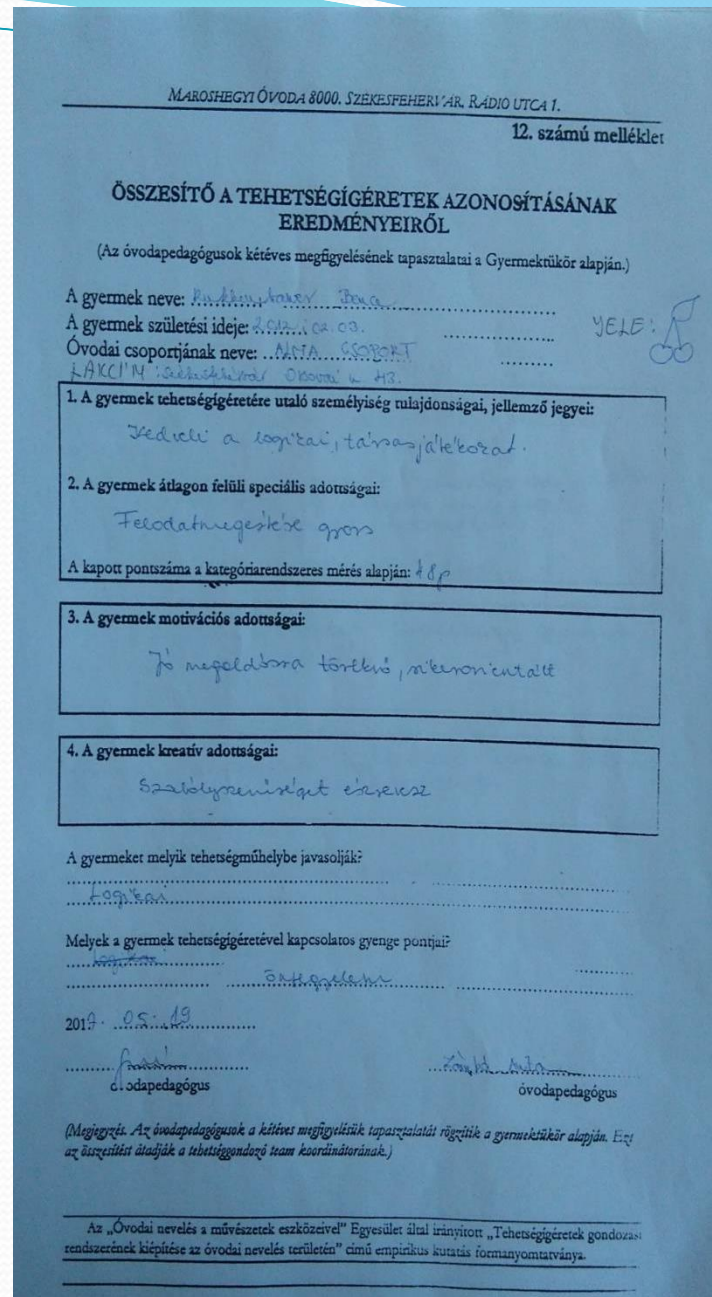 MAROSHEGYI ÓVODA 8000. SZÉKESFEHÉRVÁR, RÁDIO UTCA 1.
12. számú melléklet
ÖSSZESÍTŐ A TEHETSÉGÍGÉRETEK AZONOSÍTÁSÁNAK
EREDMÉNYEIRŐL
(Az óvodapedagógusok kétéves megfigyelésének tapasztalatai a Gyermektükör alapján.)
A gyermek neve:
A gyermek születési ideje: 2012. 02. 03.
JELE:
Óvodai csoportjának neve: ALMA CSOPORT
LAKCÍM: Székesfehérvár u. 43.
1. A gyermek tehetségígéretére utaló személyiség tulajdonságai, jellemző jegyei:
Kedveli a logikai, társasjátékokat.
2. A gyermek átlagon felüli speciális adottságai:
Feladatmegértése gyors
A kapott pontszáma a kategóriarendszeres mérés alapján:
3. A gyermek motivációs adottságai:
Jó megoldásra törekvő, sikerorientált
4. A gyermek kreatív adottságai:
Szabályszerűséget észrevesz
A gyermeket melyik tehetségműhelybe javasolják?
Logikai
Melyek a gyermek tehetségígéretével kapcsolatos gyenge pontjai?
önfegyelem
2017. 05. 19
óvodapedagógus
óvodapedagógus
(Megjegyzés. Az óvodapedagógusok a kétéves megfigyelésük tapasztalatát rögzítik a gyermektükör alapján. Ezt
az összesítést átadják a tehetséggondozó team koordinátorának.)
Az „Óvodai nevelés a művészetek eszközeivel” Egyesület által irányított „Tehetségígéretek gondozási
rendszerének kiépítése az óvodai nevelés területén” című empirikus kutatás formanyomtatványa.